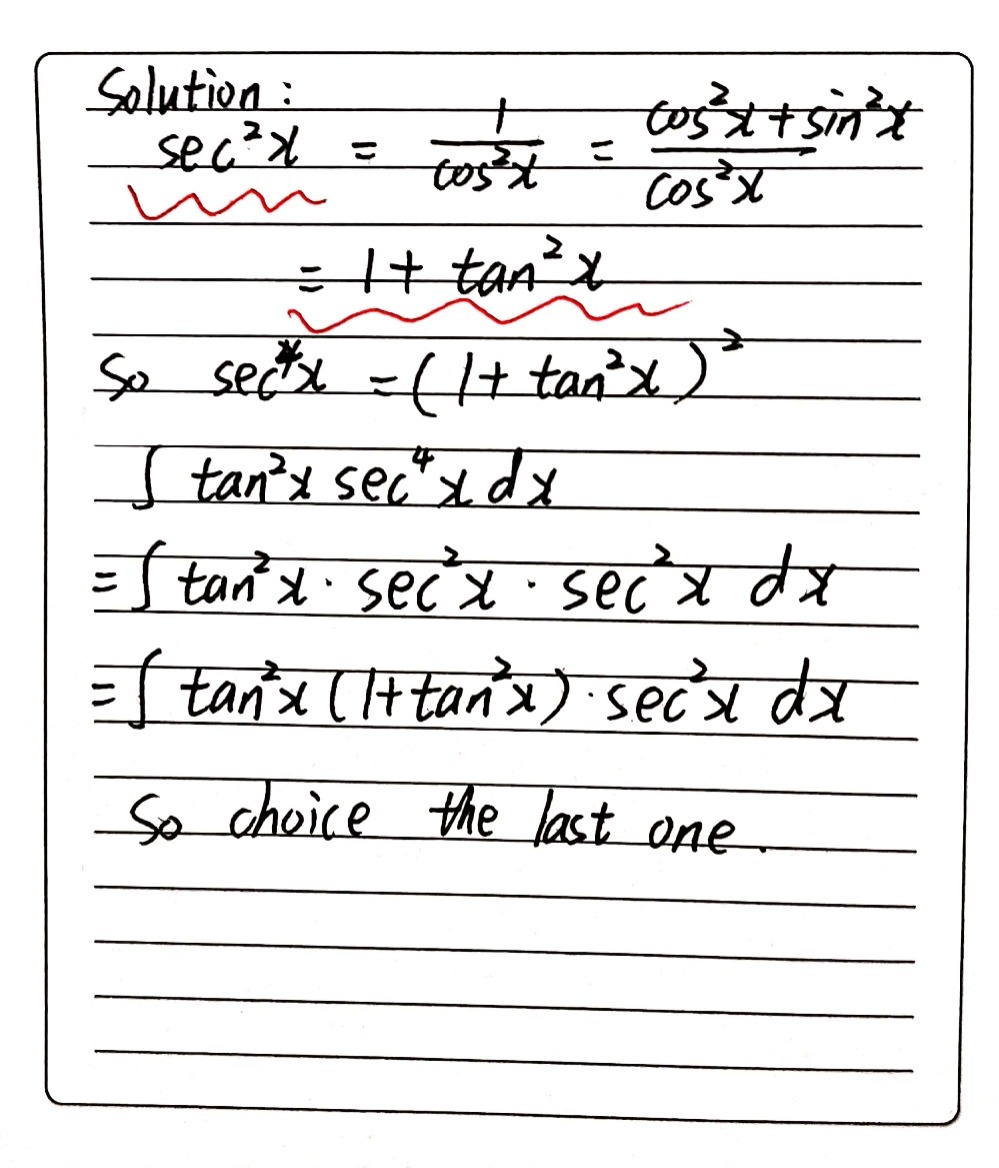 Solution:
sec²x = 1/cos²x = (cos²x + sin²x)/cos²x
= 1 + tan²x
So sec⁴x = (1 + tan²x)²
∫ tan²x sec⁴x dx
= ∫ tan²x · sec²x · sec²x dx
= ∫ tan²x (1+tan²x) · sec²x dx
So choice the last one.